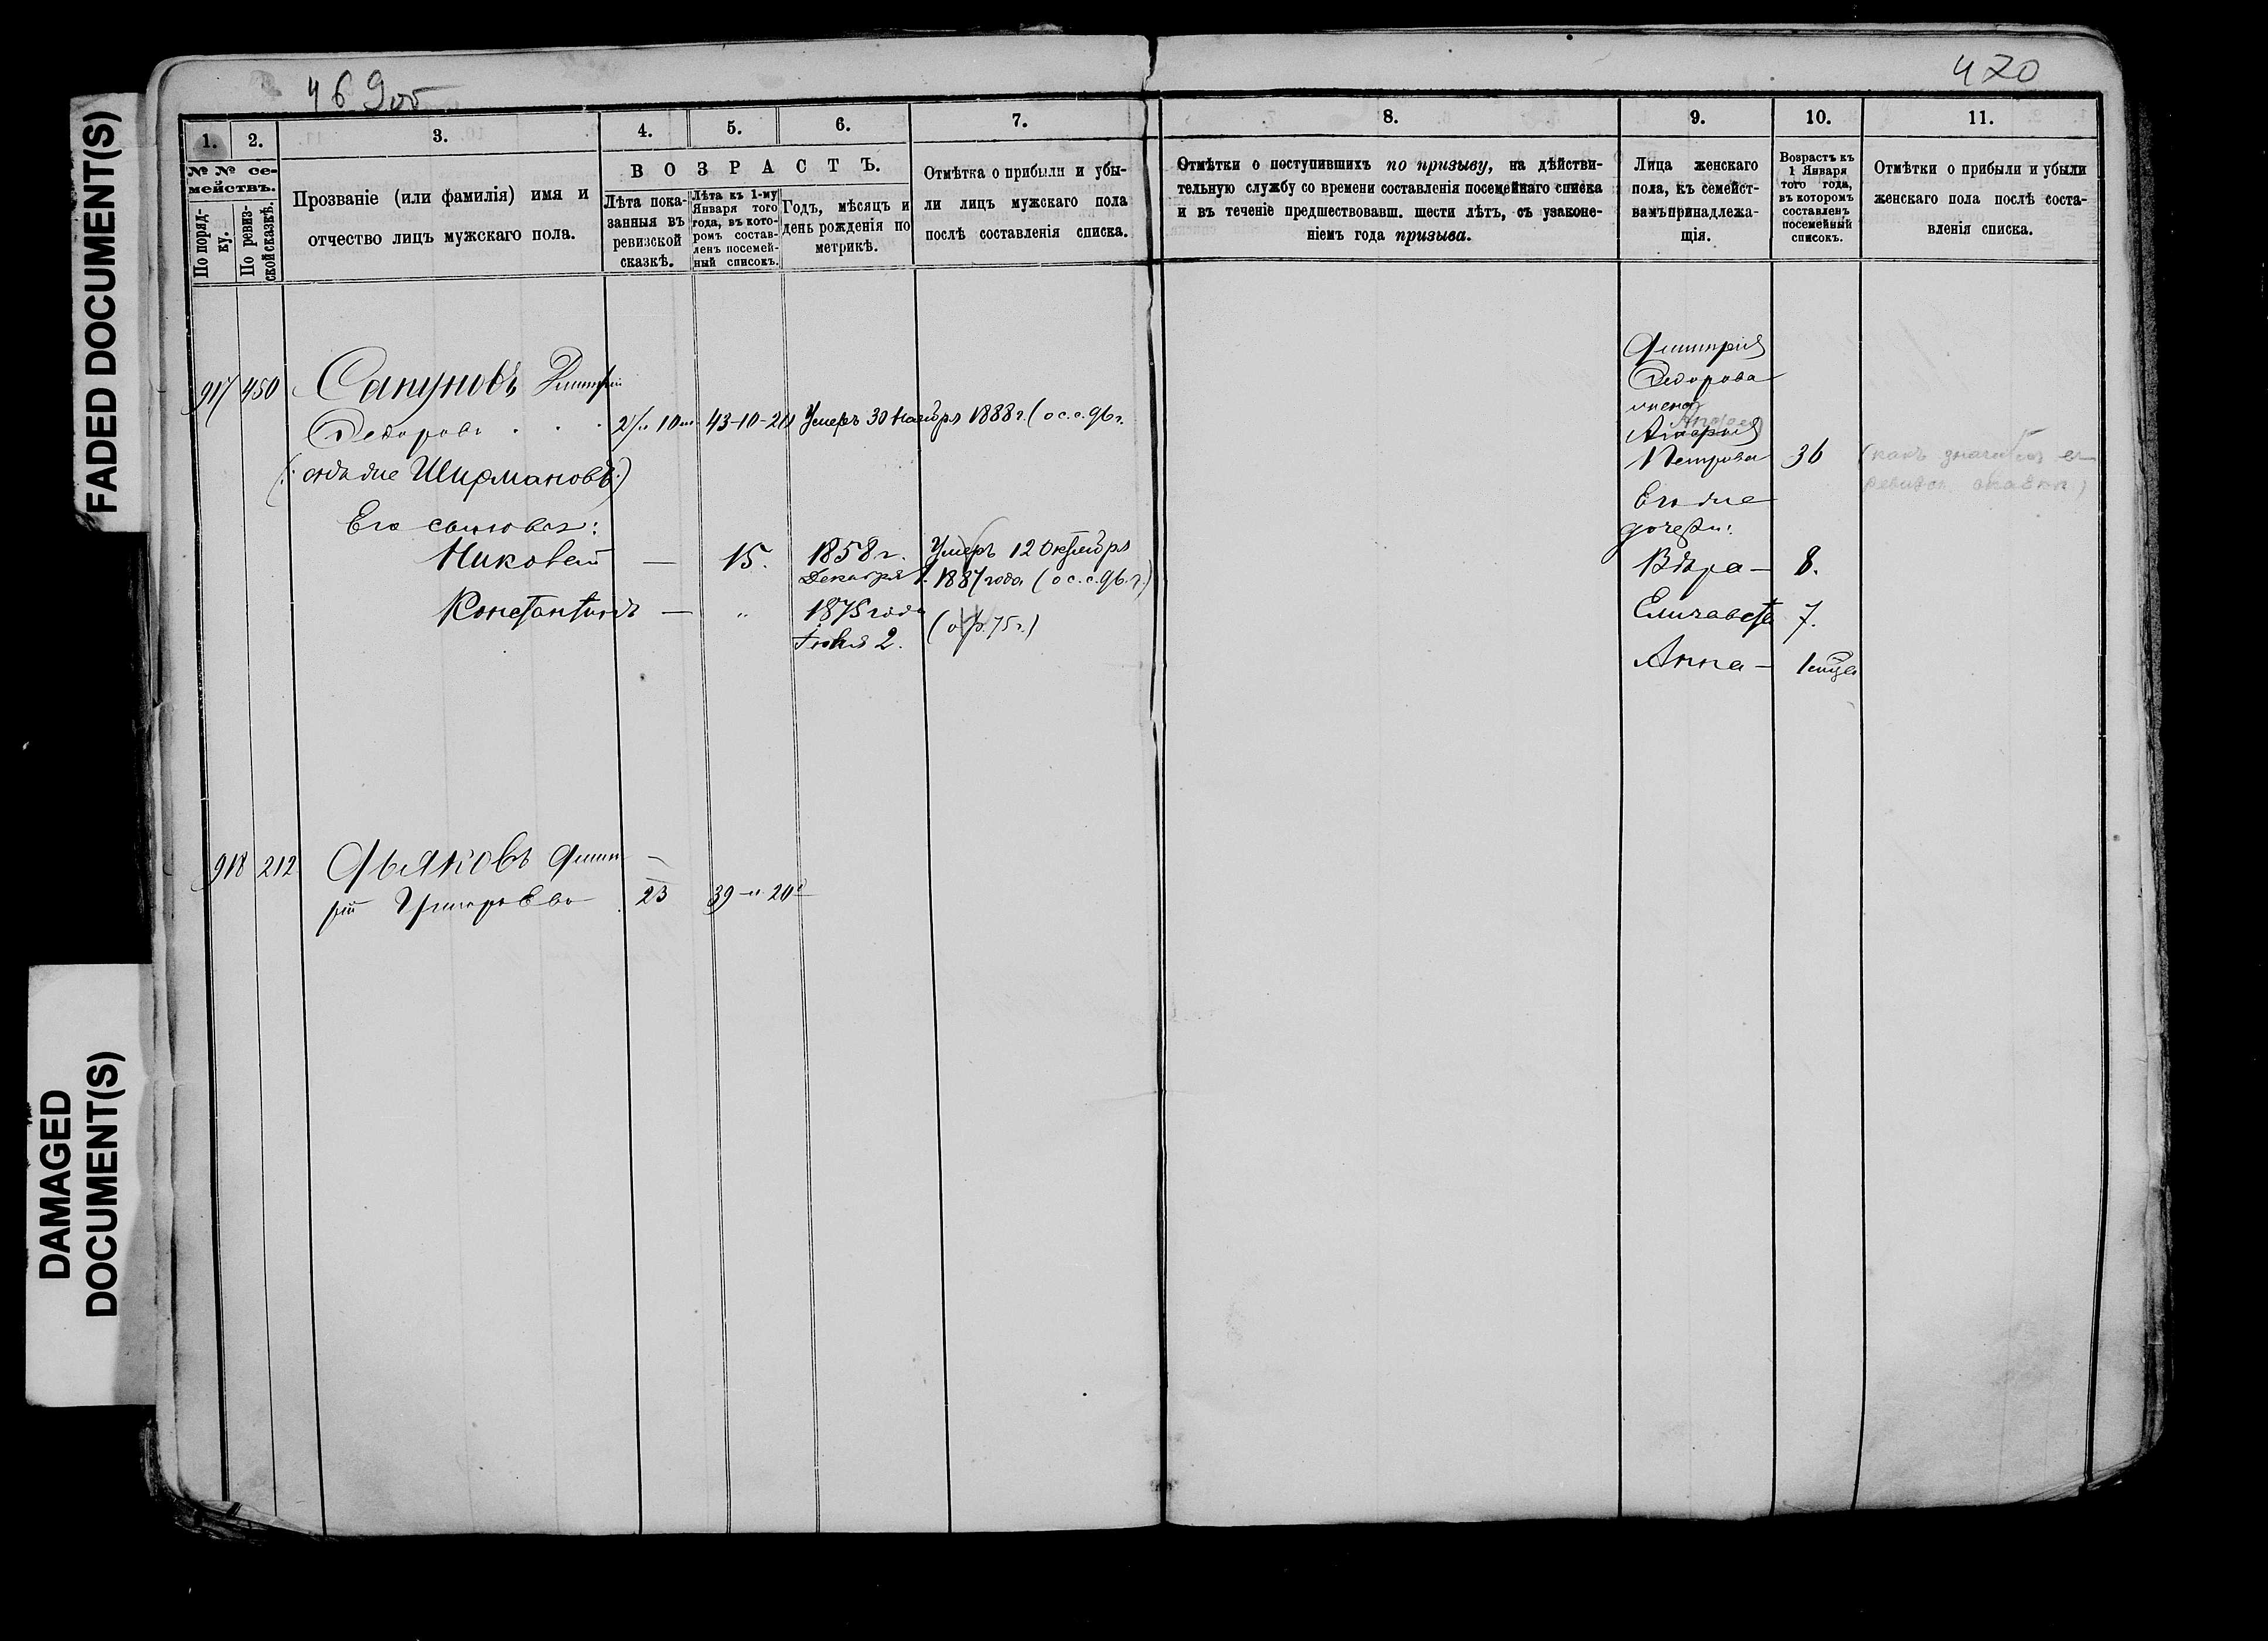 FADED DOCUMENT(S)
DAMAGED
DOCUMENT(S)
469об
470
1.
2.
3.
4.
5.
6.
7.
8.
9.
10.
11.
№ № се-
мействъ.
По поряд-
ку.
По ревиз-
ской сказкѣ.
Прозваніе (или фамилія) имя и
отчество лицъ мужскаго пола.
ВОЗРАСТЪ.
Лѣта пока-
занныя въ
ревизской
сказкѣ.
Лѣта къ 1-му
Января того
года, въ кото-
ромъ состав-
ленъ посемей-
ный списокъ.
Годъ, мѣсяцъ и
день рожденія по
метрикѣ.
Отмѣтка о прибыли и убы-
ли лицъ мужскаго пола
послѣ составленія списка.
Отмѣтки о поступившихъ по призыву, на дѣйстви-
тельную службу со времени составленія посемейнаго списка
и въ теченіе предшествовавш. шести лѣтъ, съ узаконе-
ніемъ года призыва.
Лица женскаго
пола, къ семейст-
вамъ принадлежа-
щія.
Возрастъ къ
1 Января
того года,
въ которомъ
составленъ
посемейный
списокъ.
Отмѣтки о прибыли и убыли
женскаго пола послѣ соста-
вленія списка.
917 450 Сапуновъ Дмитрій
Федоровъ 43-10-20 Умеръ 30 Ноября 1888 г. (о с. с. 96 г.
(: онъ же Ширмановъ:)
Его сыновья:
Николай — 15. 1858 г. Умеръ 12 Октября
Декабря 1. 1887 года (о с. с. 96. г.)
Константинъ — " 1875 года
Іюня 2. 75 г.)
Дмитрія
Федорова
жена
Марія
Петрова 36 (какъ значится въ
ревизск. сказкѣ)
Его же
дочери:
Вѣра — 8.
Елизавета 7.
Анна — 1
918 212 Дьяковъ Дмит
рій Григорьевъ 23 39